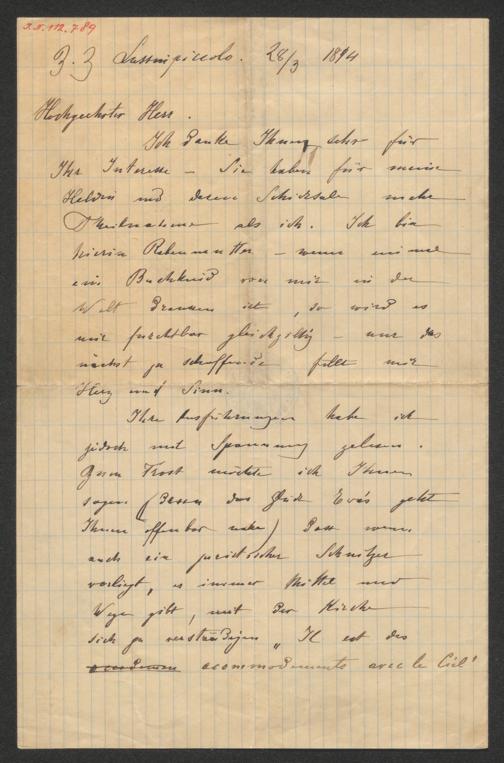 I.N. 112.789
Z. Z Lussinpiccolo. 28/3 1894
Hochgeehrter Herr.
Ich danke Ihnen sehr für
Ihr Interesse – Sie haben für meine
Heldin und deren Schicksale mehr
Theilnahme als ich. Ich bin
hierin Rabenmutter – wenn einmal
ein Buchkind von mir in der
Welt draussen ist, so wird es
mir furchtbar gleichgiltig – nur das
nächst zu schaffende füllt mir
Herz und Sinn.
Ihre Ausführungen habe ich
jedoch mit Spannung gelesen.
Zum Trost möchte ich Ihnen
sagen (denn das Glück Eva's geht
Ihnen offenbar nahe) dass wenn
auch ein juristischer Schnitzer
vorliegt, es immer Mittel und
Wege gibt, mit der Kirche
sich zu verständigen „Il est des
accommodements avec le Ciel"